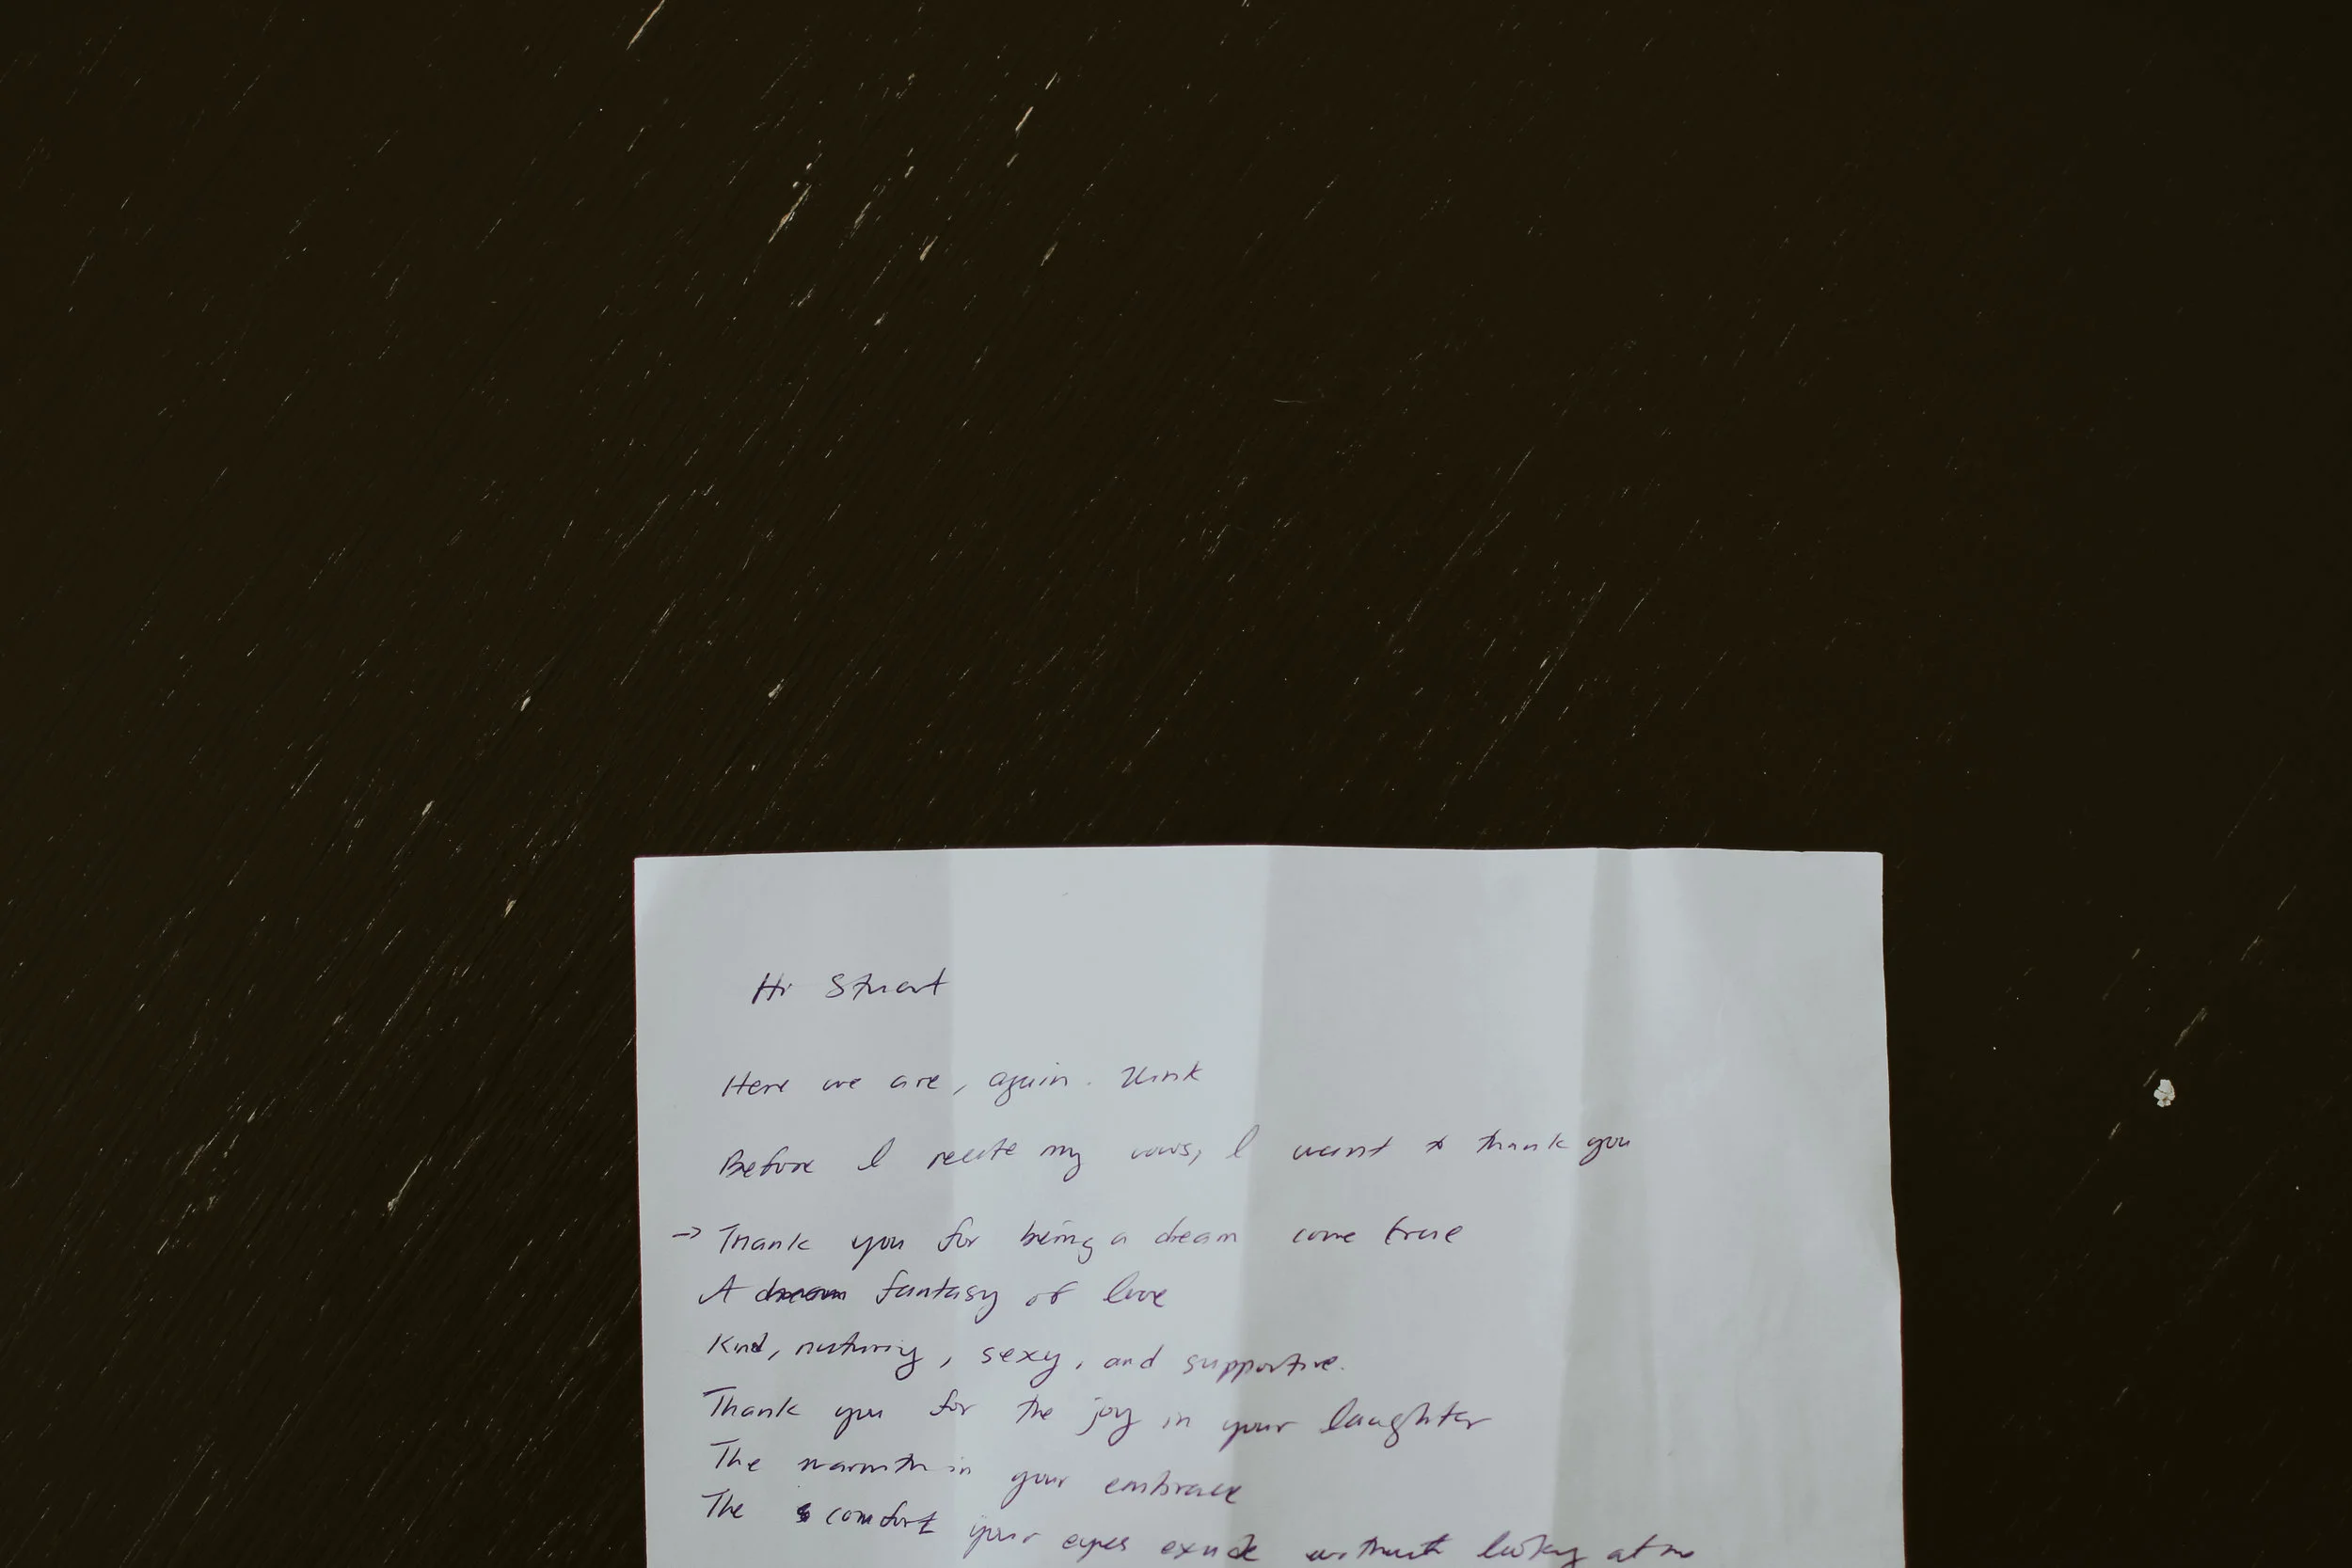 Hi Stuart
Here we are, again. Wink
Before I recite my vows, I want to thank you
→ Thank you for being a dream come true
A dream fantasy of love
Kind, nurturing, sexy, and supportive.
Thank you for the joy in your laughter
The warmth in your embrace
The comfort your eyes exude without looking at me